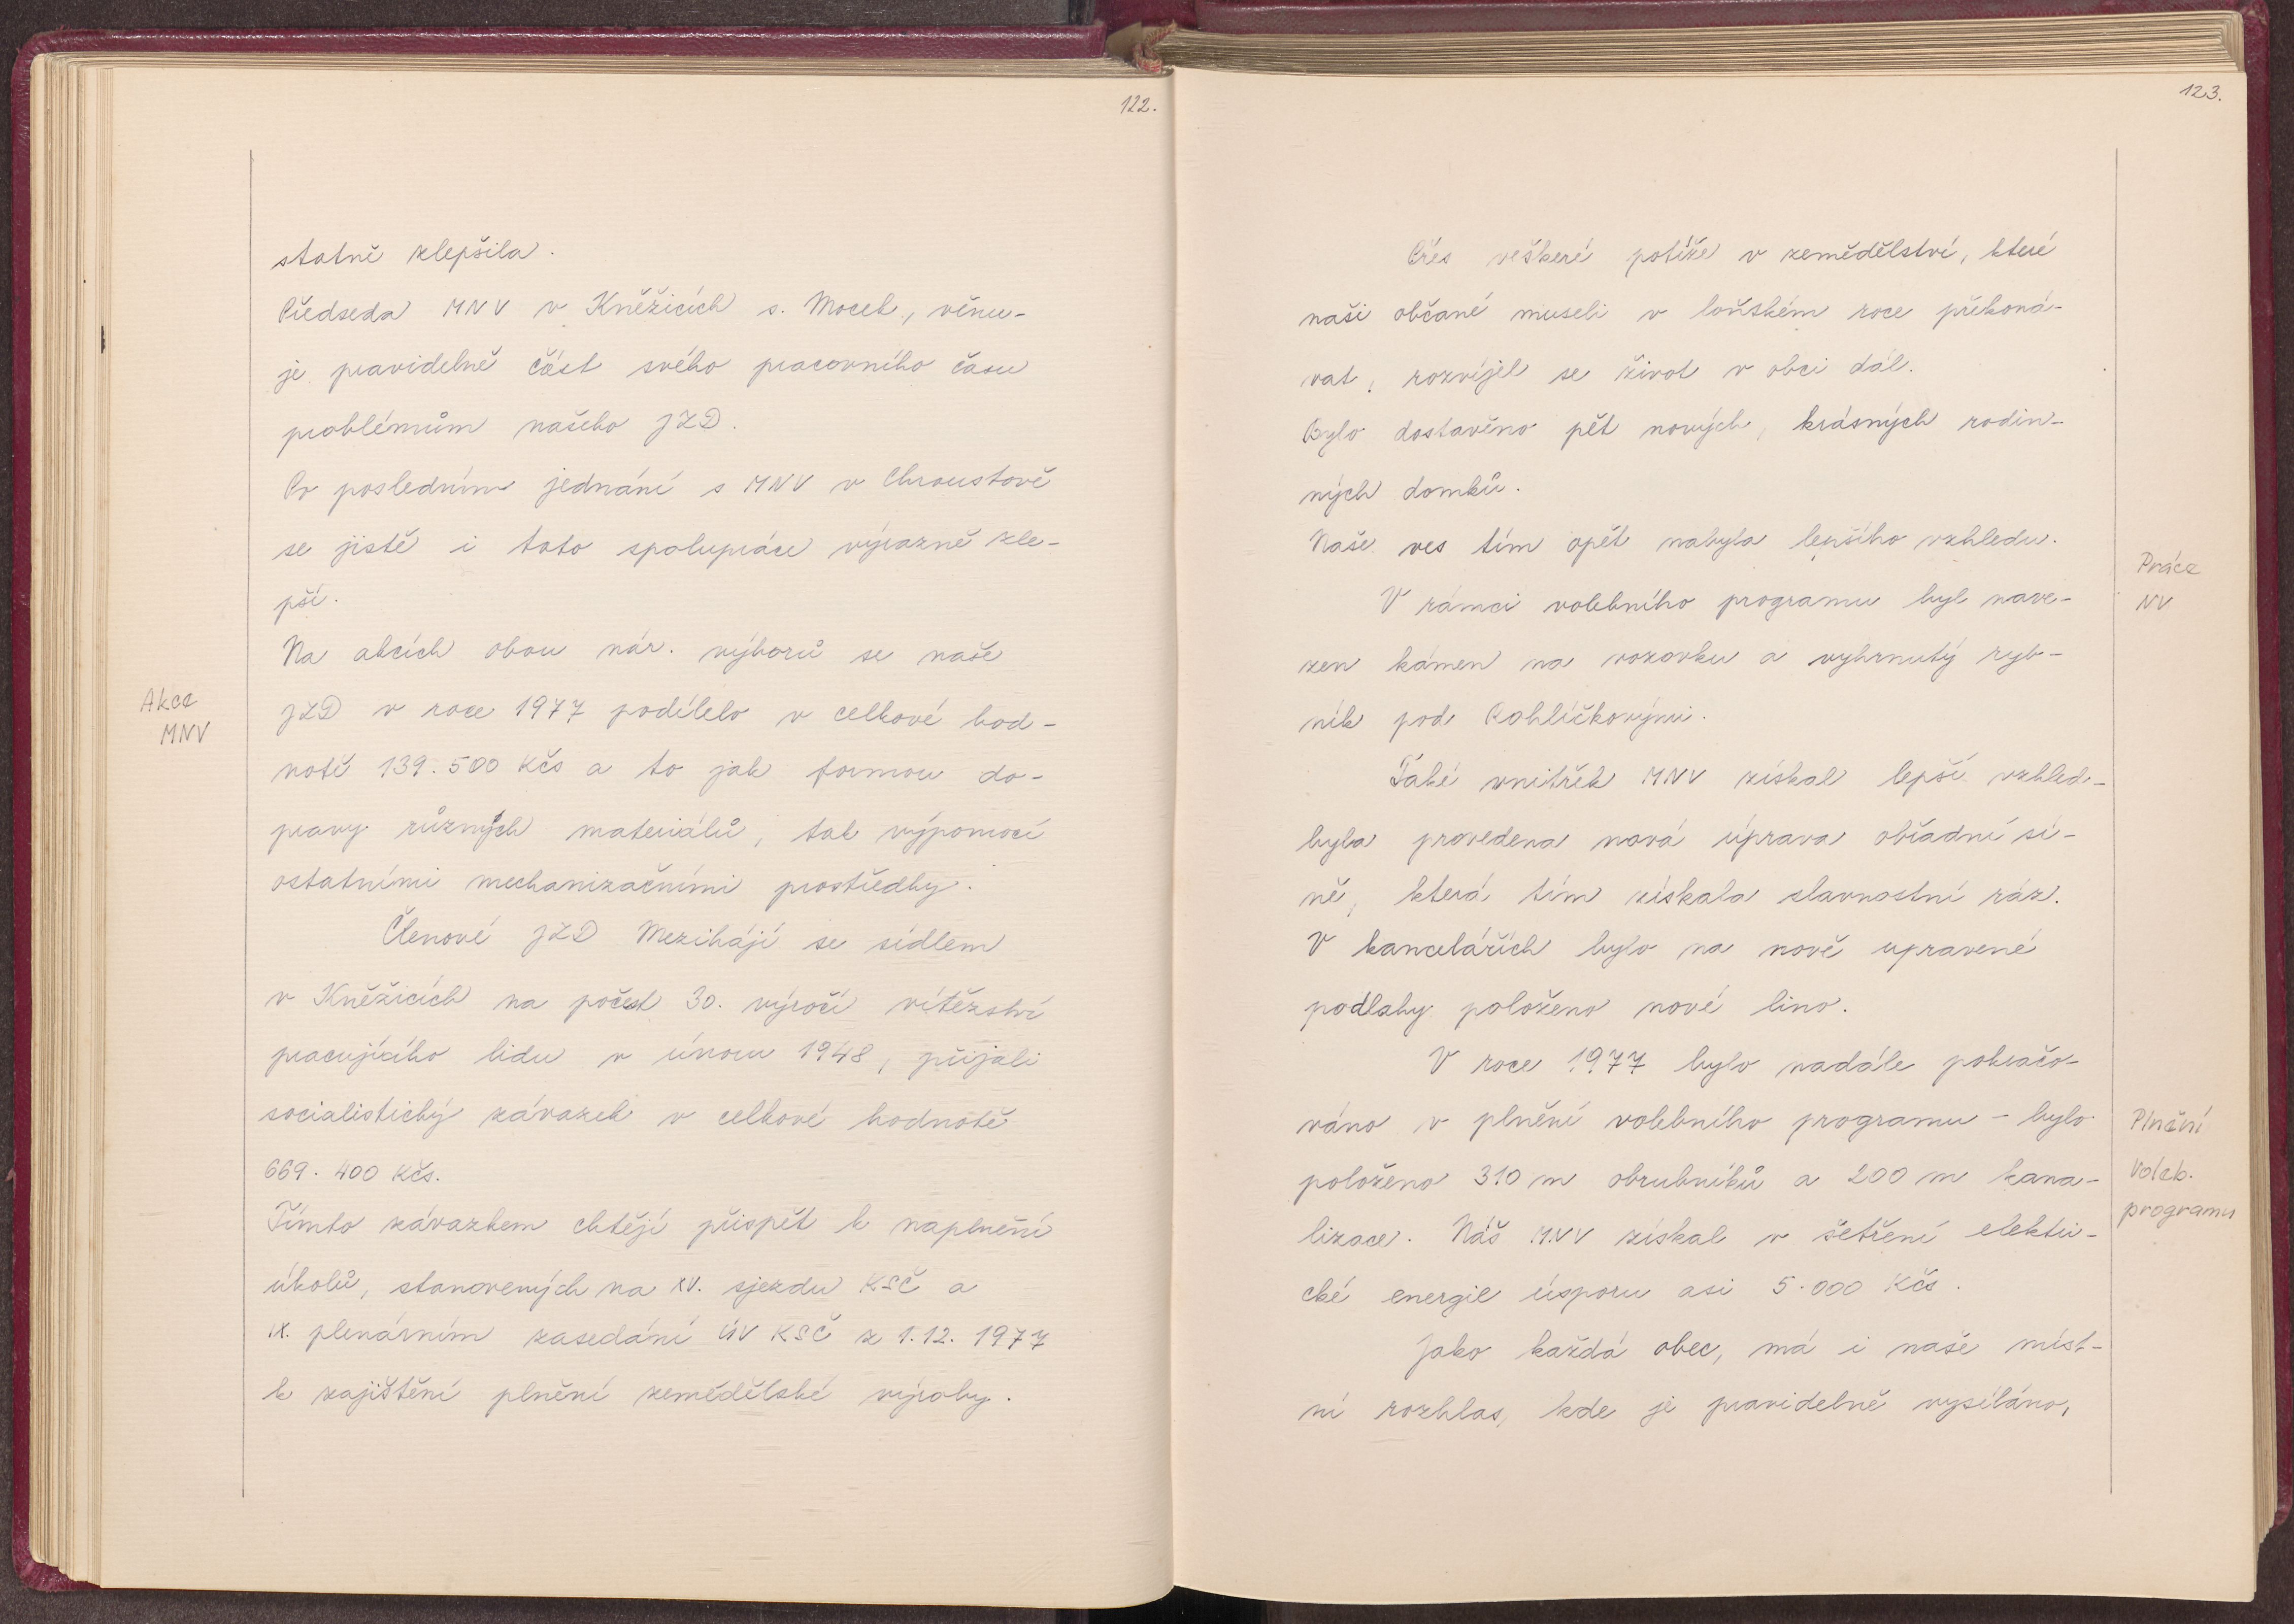 122.
statně zlepšila.
Předseda MNV v Kněžicích s. Mocek, věnu-
je pravidelně část svého pracovního času
problémům našeho JZD.
Po posledním jednání s MNV v Chroustově
se jistě i tato spolupráce výrazně zle-
pší.
Na akcích obou nár. výborů se naše
Akce
MNV
JZD v roce 1977 podílelo v celkové hod-
notě 139.500 Kčs a to jak formou do-
pravy různých materiálů, tak výpomocí
ostatními mechanizačními prostředky.
Členové JZD Mezihájí se sídlem
v Kněžicích na počest 30. výročí vítězství
pracujícího lidu v únoru 1948, přijali
socialistický závazek v celkové hodnotě
669.400 Kčs.
Tímto závazkem chtějí přispět k naplnění
úkolů, stanovených na XV. sjezdu KSČ a
IX. plenárním zasedání ÚV KSČ z 1.12. 1977
k zajištění plnění zemědělské výroby.
123.
Přes veškeré potíže v zemědělství, které
naši občané museli v loňském roce překoná-
vat, rozvíjel se život v obci dál.
Bylo dostavěno pět nových, krásných rodin-
ných domků.
Naše ves tím opět nabyla lepšího vzhledu.
Práce
NV
V rámci volebního programu byl nave-
zen kámen na vozovku a vyhrnutý ryb-
ník pod Pohličkovými.
Také vnitřek MNV získal lepší vzhled-
byla provedena nová úprava obřadní sí-
ně, která tím získala slavnostní ráz.
V kancelářích bylo na nově upravené
podlahy položeno nové lino.
V roce 1977 bylo nadále pokračo-
váno v plnění volebního programu - bylo
Plnění
Voleb.
programu
položeno 310 m obrubníků a 200 m kana-
lizace. Náš MNV získal v šetření elektri-
cké energie úsporu asi 5.000 Kčs.
Jako každá obec, má i naše míst-
ní rozhlas, kde je pravidelně vysíláno,